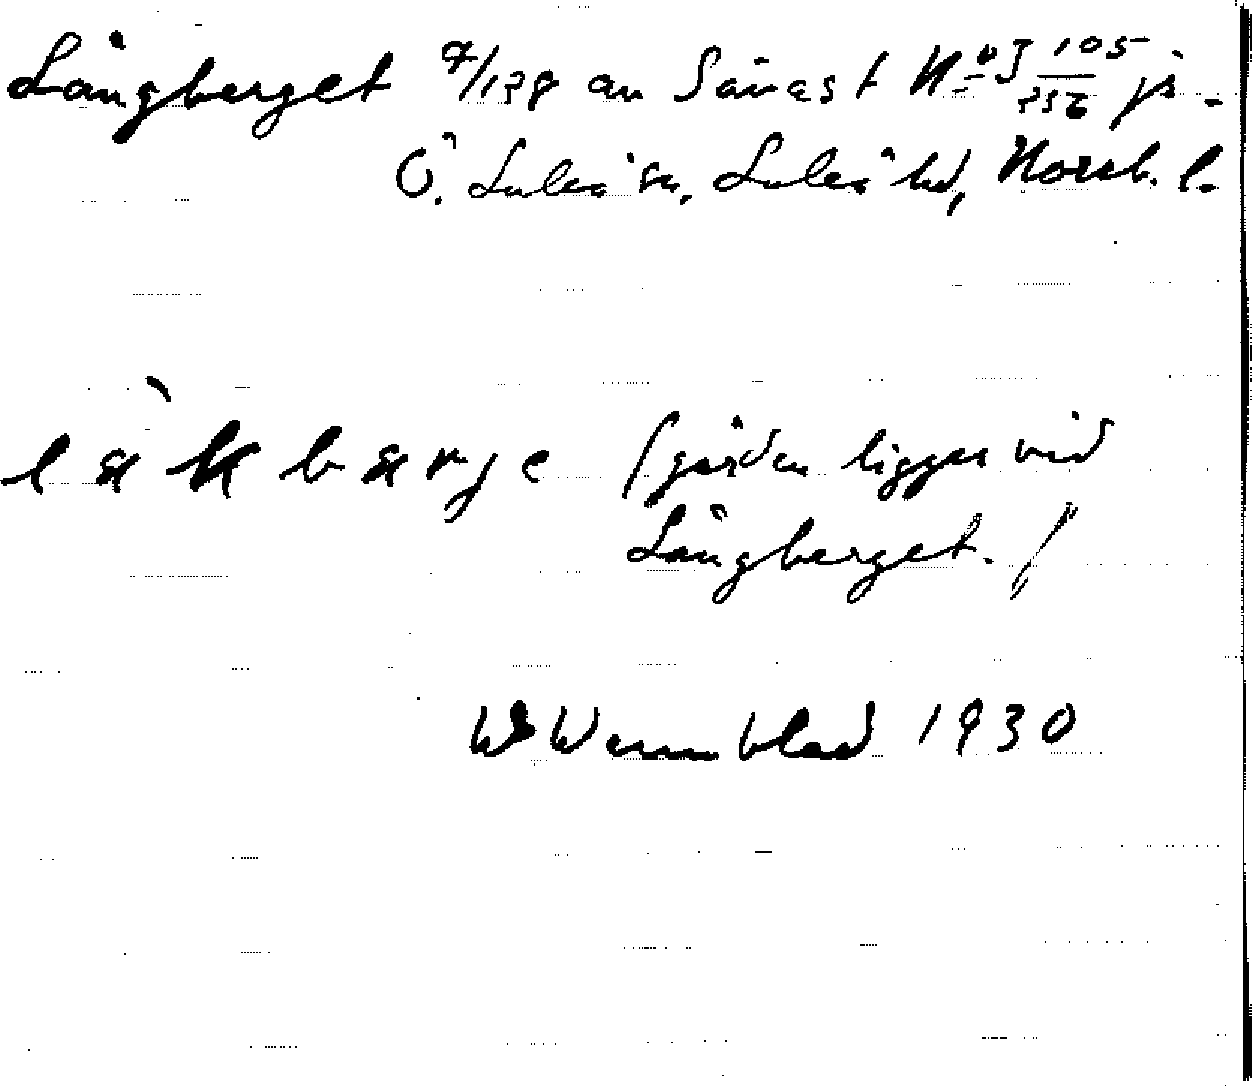 Långberget 7/128 av Sävast No 3 105/256 js.
Ö. Luleå sn, Luleå hd, Norrb. l.
(gården ligger vid
Långberget.)
W Wennblad 1930